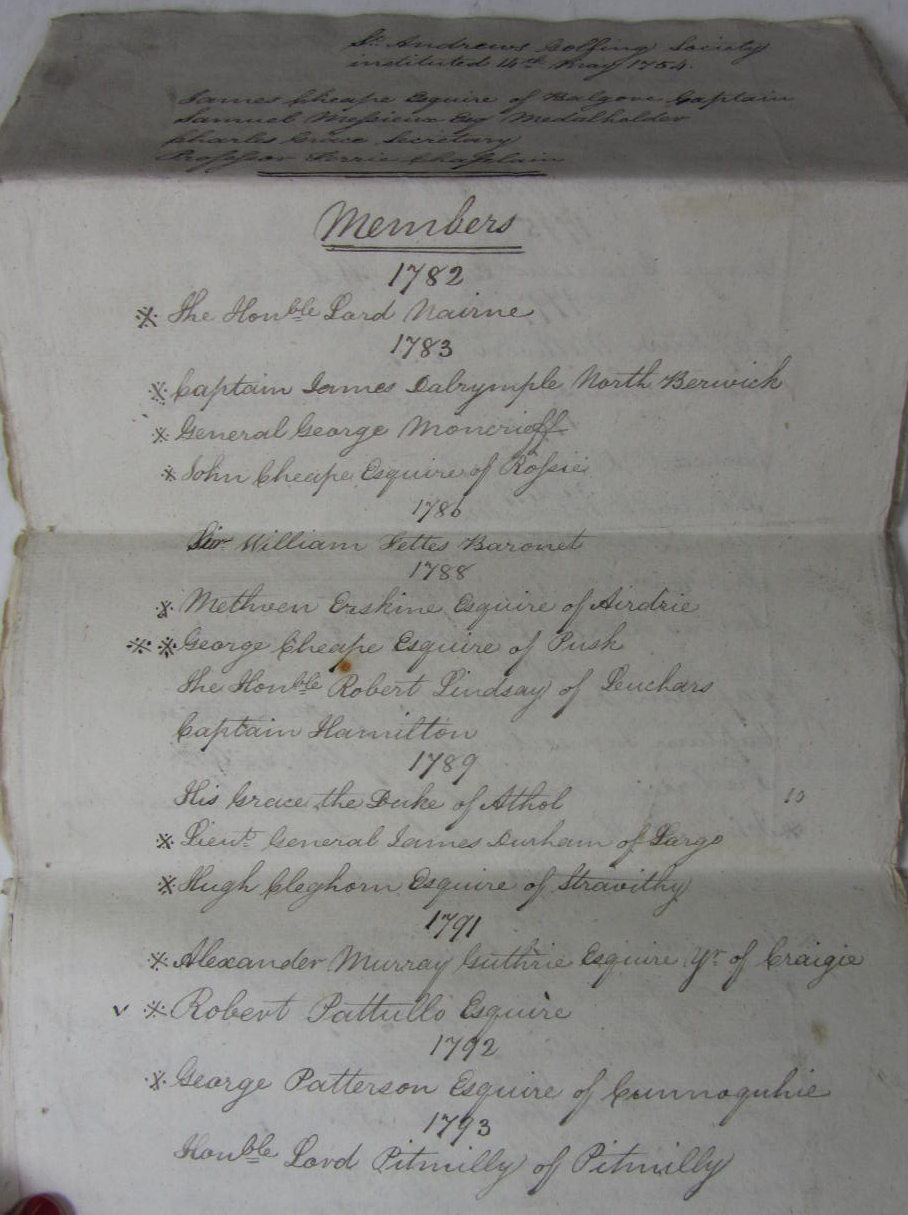 St. Andrews Golfing Society
instituted 14th May 1754.
James Cheape Esquire of Balgove Captain
Samuel Messieux Esq Medalholder
Charles Grace Secretary
Professor Ferrie Chaplain
Members
1782
※ The Honble Lord Nairne
1783
※ Captain James Dalrymple North Berwick
※ General George Moncrieff
※ John Cheape Esquire of Rossie
1786
Sir William Fettes Baronet
1788
※ Methven Erskine Esquire of Airdrie
※ ※ George Cheape Esquire of Pusk
The Honble Robert Lindsay of Leuchars
Captain Hamilton
1789
His Grace the Duke of Athol 10
※ Lieut. General James Durham of Largo
※ Hugh Cleghorn Esquire of Stravithy
1791
※ Alexander Murray Guthrie Esquire yr. of Craigie
v ※ Robert Pattullo Esquire
1792
※ George Patterson Esquire of Cunnoquhie
1793
Honble Lord Pitmilly of Pitmilly